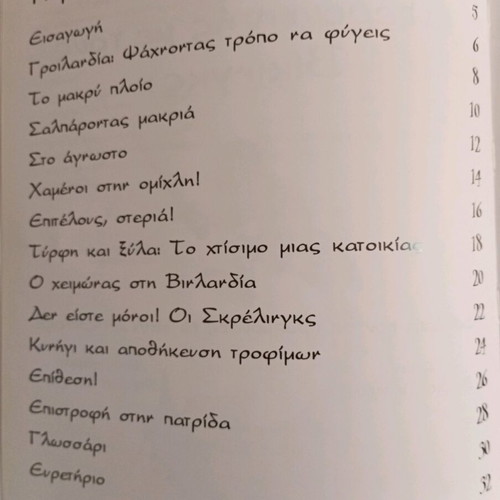 Εισαγωγή 5
Γροιλανδία: Ψάχνοντας τρόπο να φύγεις 6
Το μακρύ πλοίο 8
Σαλπάροντας μακριά 10
Στο άγνωστο 12
Χαμένοι στην ομίχλη! 14
Επιτέλους, στεριά! 16
Τύρφη και ξύλα: Το χτίσιμο μιας κατοικίας 18
Ο χειμώνας στη Βινλανδία 20
Δεν είστε μόνοι! Οι Σκρέλινγκς 22
Κυνήγι και αποθήκευση τροφίμων 24
Επίθεση! 26
Επιστροφή στην πατρίδα 28
Γλωσσάρι 30
Ευρετήριο 32